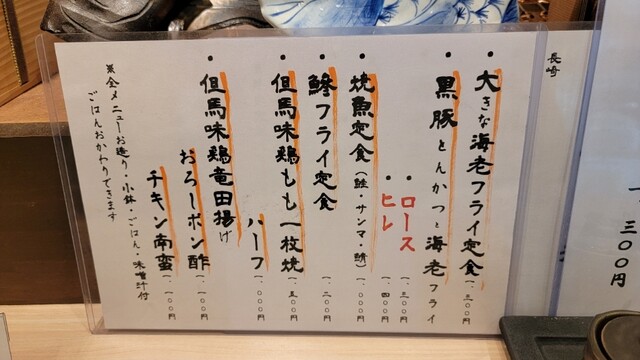 長崎
・大きな海老フライ定食 一、三〇〇円
・黒豚とんかつと海老フライ
・ロース 一、三〇〇円
・ヒレ 一、四〇〇円
・焼魚定食(鮭・サンマ・鯖) 一、〇〇〇円
・鯵フライ定食 一、二〇〇円
・但馬味鶏もも一枚焼 一、五〇〇円
ハーフ 一、〇〇〇円
・但馬味鶏竜田揚げ
おろしポン酢 一、一〇〇円
チキン南蛮 一、一〇〇円
※全メニューお造り・小鉢・ごはん・味噌汁付
ごはんおかわりできます
三〇〇円